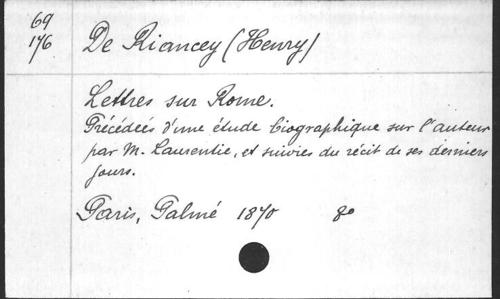 69
176
De Riancey (Henry)
Lettres sur Rome.
Précédées d'une étude biographique sur l'auteur
par M. Laurentie, et suivies du récit de ses derniers
jours.
Paris, Palmé 1870 8o